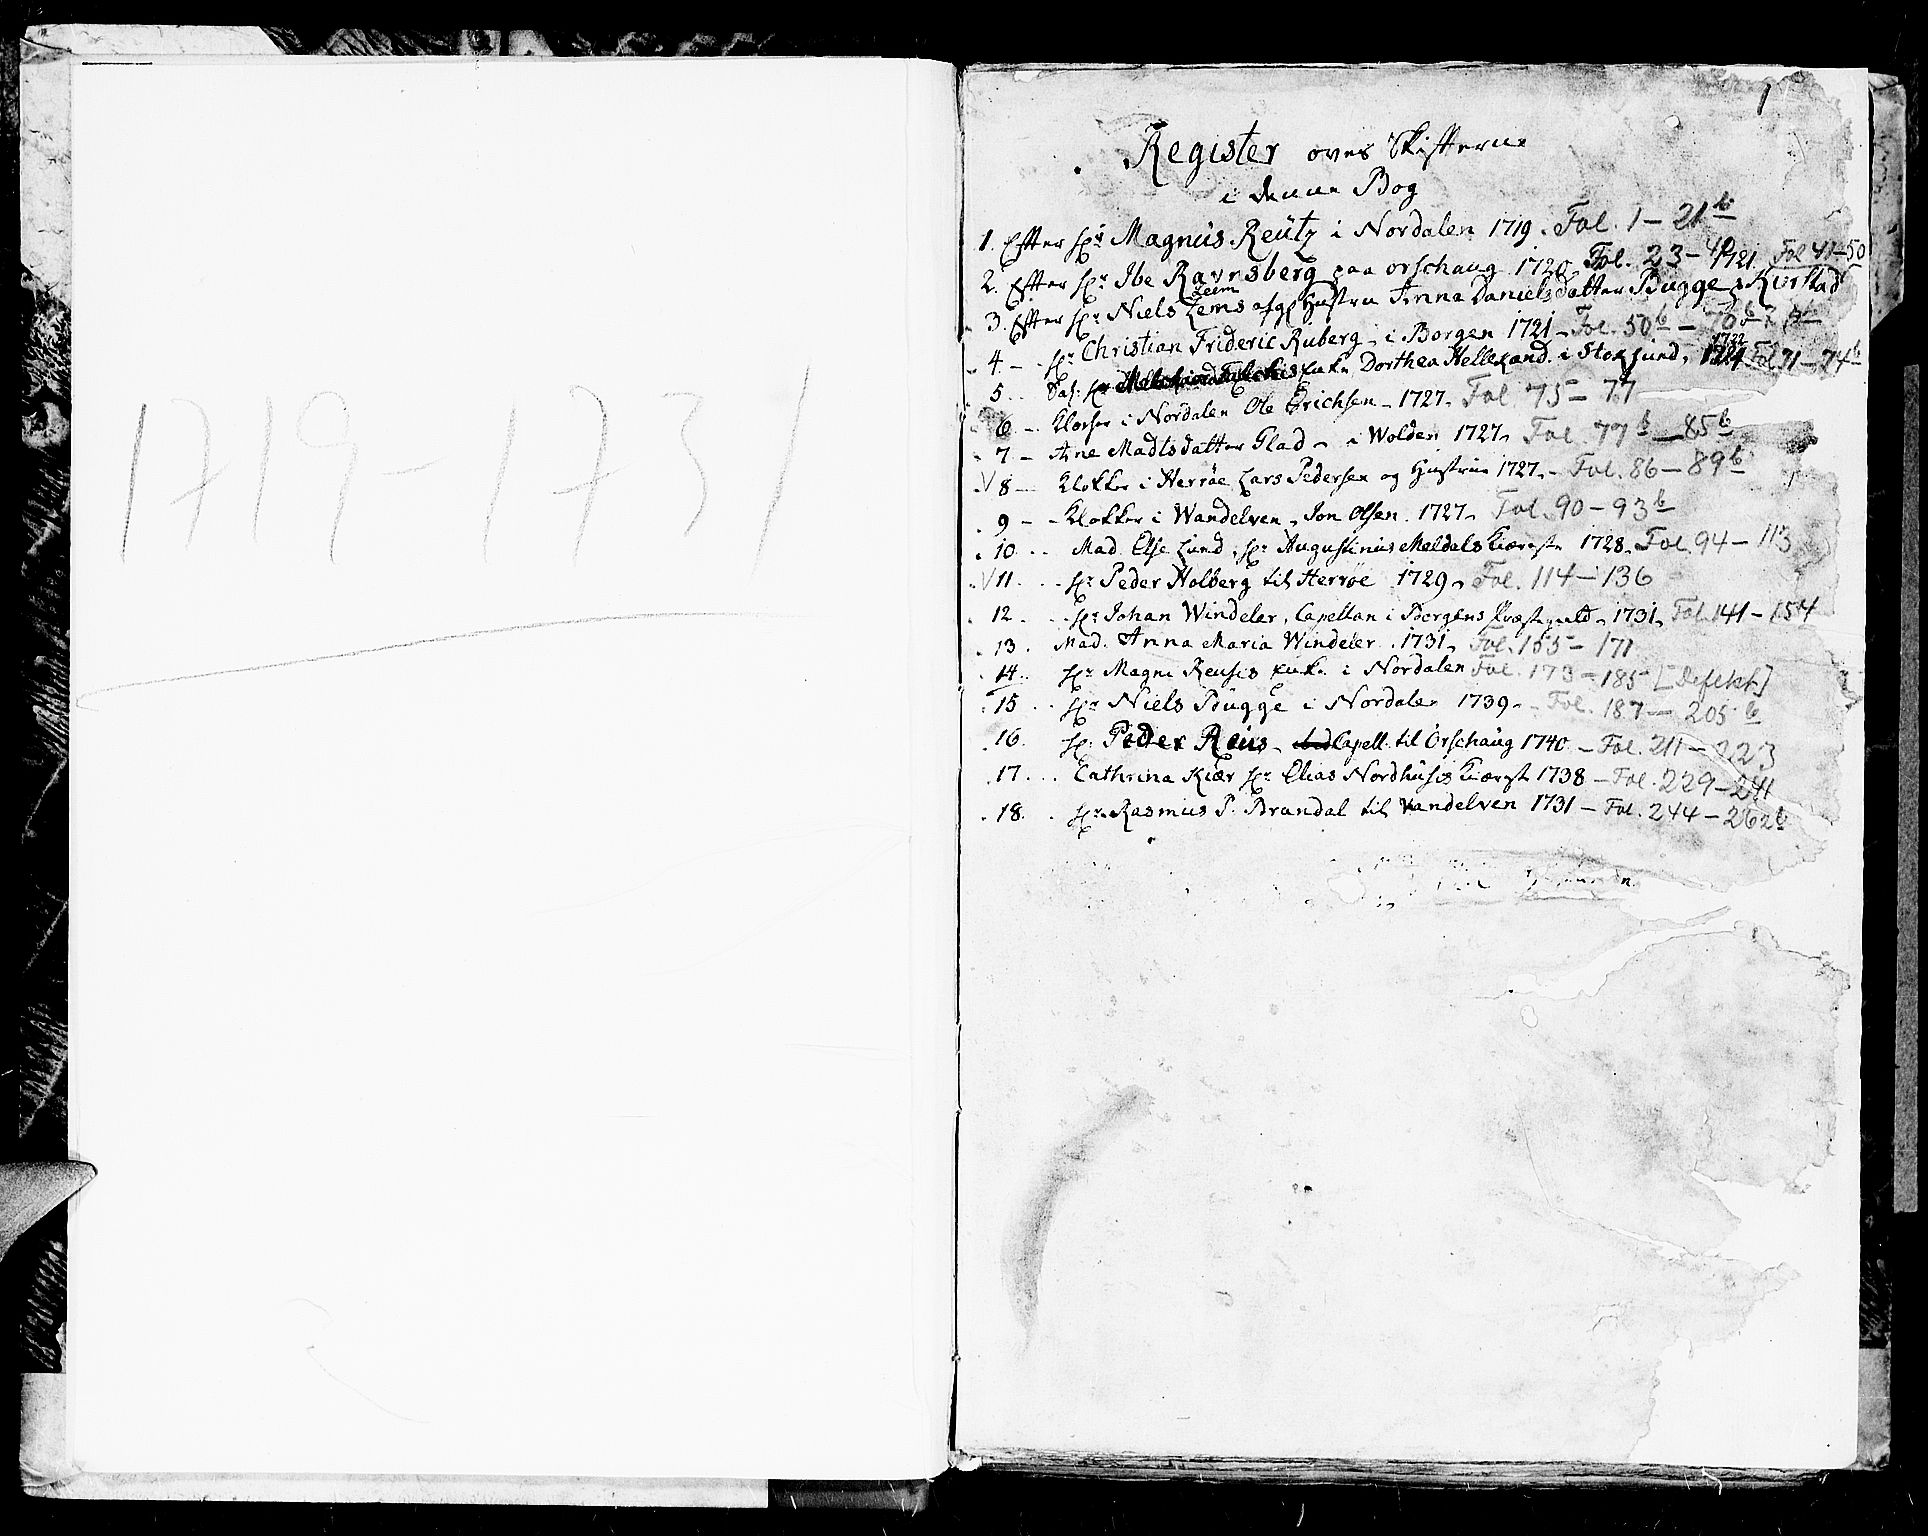 1719-1731
1
Register over Skifterne
i denne Bog
1. Efter Hr Magnus Reutz i Nordalen 1719. Fol. 1-21b
2. Efter Hr Ibe Ravnsberg paa orschaug 1720 Fol. 23-40
1721 Fol 41-50
Leem
3. Efter Hr Niels Lems afg. Hustru Anna Danielsdatter Bugge
4. - Hr Christian Frideric Ruberg - i Borgen 1721 - Fol. 50b - 70
5. Sal: Hr Enke Dorthea Hellesand i Stoksund, Fol 71-74b
6 - Klocker i Nordalen Ole Erichsen - 1727. Fol. 75-77
7 - Ane Madtsdatter Glad - i Wolden 1727. Fol. 77b-85b
V 8 - Klokker i Herröe Lars Pedersen og Hustrue 1727. - Fol. 86-89b
9 - - Klokker i Wandelven, Jon Olsen. 1727. Fol. 90-93b
10. .. Mad. Else Lund, Hr Augustinus Meldals Kiæreste 1728. Fol. 94-113
V 11. .. Hr Peder Holberg til Herröe 1729. Fol. 114-136
12. .. Hr Johan Windeler, Capellan i Borgens Præstegield. 1731. Fol. 141-154
13. Mad. Anna Maria Windeler. 1731. Fol. 155-171
14. Hr Magni Reusis Enke i Nordalen Fol. 173-185 [Defekt]
15 .. Hr Niels Bugge i Nordalen 1739. - Fol. 187-205b
16. Hr. Peder Reus - Capell. til Orschaug 1740 - Fol. 211-223
17. .. Cathrina Kiær Hr Elias Nordhusis Kiærest 1738 - Fol. 229-241
18. . Hr. Rasmus P. Brandal til Vandelven 1731 - Fol. 244-262b